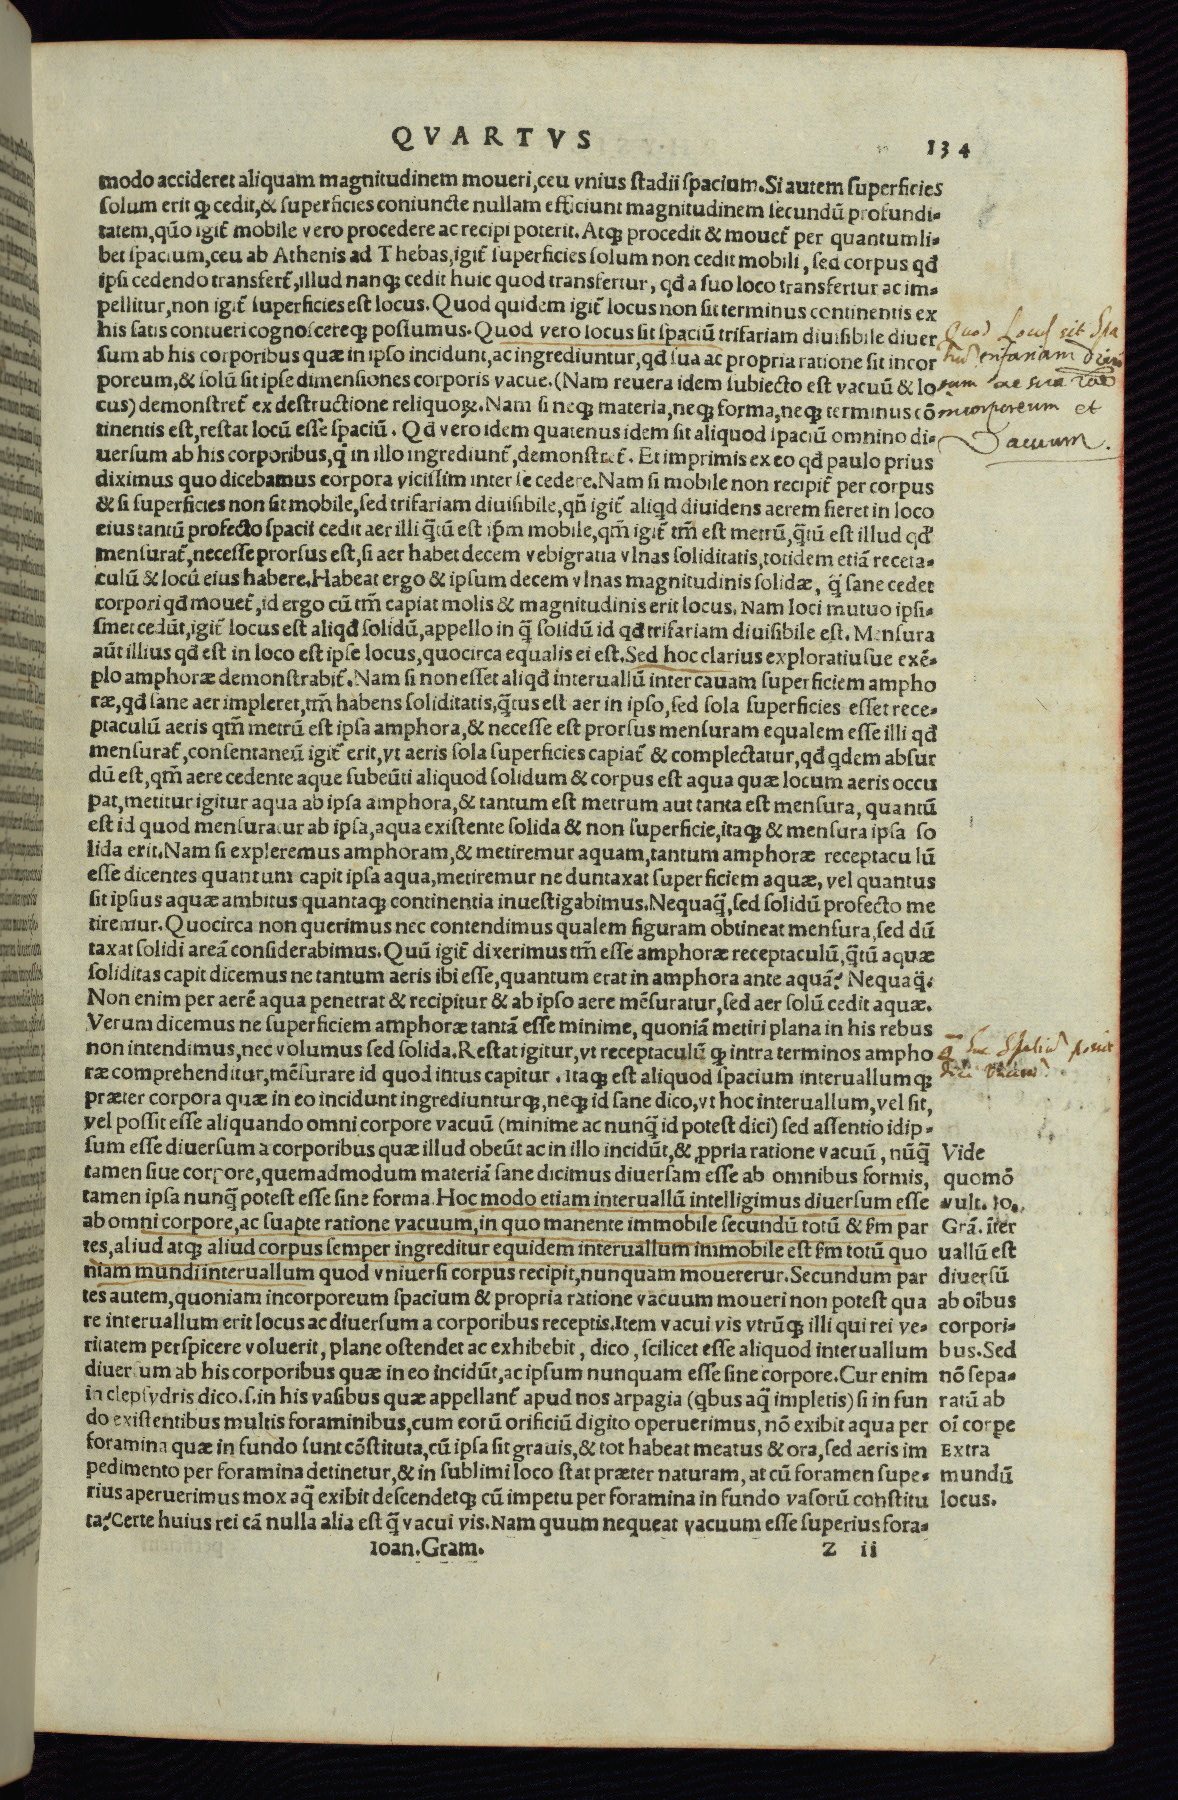 QVARTVS
134
modo accideret aliquam magnitudinem moueri, ceu vnius stadii spacium. Si autem superficies
solum erit qꝫ cedit, & superficies coniuncte nullam efficiunt magnitudinem secundū profundi-
tatem, quō igit̄ mobile vero procedere ac recipi poterit. Atqꝫ procedit & mouet̄ per quantumli-
bet spacium, ceu ab Athenis ad Thebas, igit̄ superficies solum non cedit mobili, sed corpus qđ
ipsi cedendo transfert̄, illud nanqꝫ cedit huic quod transfertur, qđ a suo loco transfertur ac im-
pellitur, non igit̄ superficies est locus. Quod quidem igit̄ locus non sit terminus continentis ex
his satis contueri cognoscereqꝫ possumus. Quod vero locus sit spaciū trifariam diuisibile diuer
sum ab his corporibus quæ in ipso incidunt, ac ingrediuntur, qđ sua ac propria ratione sit incor
poreum, & solū sit ipse dimensiones corporis vacue. (Nam reuera idem subiecto est vacuū & lo
cus) demonstret̄ ex destructione reliquoꝝ. Nam si neqꝫ materia, neqꝫ forma, neqꝫ terminus cō
tinentis est, restat locū esse spaciū. Qđ vero idem quatenus idem sit aliquod spaciū omnino di-
uersum ab his corporibus, q̄ in illo ingrediunt̄, demonstret̄. Et imprimis ex eo qđ paulo prius
diximus quo dicebamus corpora vicissim inter se cedere. Nam si mobile non recipit̄ per corpus
& si superficies non sit mobile, sed trifariam diuisibile, qn̄ igit̄ aliqđ diuidens aerem fieret in loco
eius tantū profecto spacii cedit aer illi q̄tū est ip̄m mobile, qm̄ igit̄ tm̄ est metrū, q̄tū est illud qđ
mensurat̄, necesse prorsus est, si aer habet decem vebigratia vlnas soliditatis, totidem etiā recepta-
culū & locū eius habere. Habeat ergo & ipsum decem vlnas magnitudinis solidæ, q̄ sane cedet
corpori qđ mouet̄, id ergo cū tm̄ capiat molis & magnitudinis erit locus. Nam loci mutuo ipsi-
smet cedūt, igit̄ locus est aliqđ solidū, appello in q̄ solidū id qđ trifariam diuisibile est. Mensura
aūt illius qđ est in loco est ipse locus, quocirca equalis ei est. Sed hoc clarius exploratiusue exē-
plo amphoræ demonstrabit̄. Nam si non esset aliqđ interuallū inter cauam superficiem ampho
ræ, qđ sane aer impleret, tm̄ habens soliditatis, q̄tus est aer in ipso, sed sola superficies esset rece-
ptaculū aeris qtm̄ metrū est ipsa amphora, & necesse est prorsus mensuram equalem esse illi qđ
mensurat̄, consentaneū igit̄ erit, vt aeris sola superficies capiat̄ & complectatur, qđ qdem absur
dū est, qm̄ aere cedente aque subeūti aliquod solidum & corpus est aqua quæ locum aeris occu
pat, metitur igitur aqua ab ipsa amphora, & tantum est metrum aut tanta est mensura, quantū
est id quod mensuratur ab ipsa, aqua existente solida & non superficie, itaqꝫ & mensura ipsa so
lida erit. Nam si expleremus amphoram, & metiremur aquam, tantum amphoræ receptacu lū
esse dicentes quantum capit ipsa aqua, metiremur ne duntaxat superficiem aquæ, vel quantus
sit ipsius aquæ ambitus quantaqꝫ continentia inuestigabimus. Nequaq̄, sed solidū profecto me
tiremur. Quocirca non querimus nec contendimus qualem figuram obtineat mensura, sed dū
taxat solidi areā considerabimus. Quū igit̄ dixerimus tm̄ esse amphoræ receptaculū, q̄tū aquæ
soliditas capit dicemus ne tantum aeris ibi esse, quantum erat in amphora ante aquā? Nequaq̄.
Non enim per aerē aqua penetrat & recipitur & ab ipso aere mēsuratur, sed aer solū cedit aquæ.
Verum dicemus ne superficiem amphoræ tantā esse minime, quoniā metiri plana in his rebus
non intendimus, nec volumus sed solida. Restat igitur, vt receptaculū qꝫ intra terminos ampho
ræ comprehenditur, mēsurare id quod intus capitur. Itaqꝫ est aliquod spacium interuallumqꝫ
præter corpora quæ in eo incidunt ingrediunturqꝫ, neqꝫ id sane dico, vt hoc interuallum, vel sit,
vel possit esse aliquando omni corpore vacuū (minime ac nunq̄ id potest dici) sed assentio idip-
sum esse diuersum a corporibus quæ illud obeūt ac in illo incidūt, & ꝓpria ratione vacuū, nūq̄
tamen siue corpore, quemadmodum materiā sane dicimus diuersam esse ab omnibus formis,
tamen ipsa nunq̄ potest esse sine forma. Hoc modo etiam interuallū intelligimus diuersum esse
ab omni corpore, ac suapte ratione vacuum, in quo manente immobile secundū totū & s̄m par
tes, aliud atqꝫ aliud corpus semper ingreditur equidem interuallum immobile est s̄m totū quo
niam mundi interuallum quod vniuersi corpus recipit, nunquam mouererur. Secundum par
tes autem, quoniam incorporeum spacium & propria ratione vacuum moueri non potest qua
re interuallum erit locus ac diuersum a corporibus receptis. Item vacui vis vtrūqꝫ illi qui rei ve-
ritatem perspicere voluerit, plane ostendet ac exhibebit, dico, scilicet esse aliquod interuallum
diuersum ab his corporibus quæ in eo incidūt, ac ipsum nunquam esse sine corpore. Cur enim
in clepsydris dico. s. in his vasibus quæ appellant̄ apud nos arpagia (qbus aq̄ impletis) si in fun
do existentibus multis foraminibus, cum eorū orificiū digito operuerimus, nō exibit aqua per
foramina quæ in fundo sunt cōstituta, cū ipsa sit grauis, & tot habeat meatus & ora, sed aeris im
pedimento per foramina detinetur, & in sublimi loco stat præter naturam, at cū foramen supe-
rius aperuerimus mox aq̄ exibit descendetqꝫ cū impetu per foramina in fundo vasorū constitu
ta? Certe huius rei cā nulla alia est q̄ vacui vis. Nam quum nequeat vacuum esse superius fora-
Ioan. Gram.
Z ii
Quod Locus sit Spa
trifariam
incorporeum et
Vacuum.
Vide
quomō
vult. Io.
Grā. īter
uallū est
diuersū
ab oībus
corpori-
bus. Sed
nō sepa-
ratū ab
oī corpe
Extra
mundū
locus.